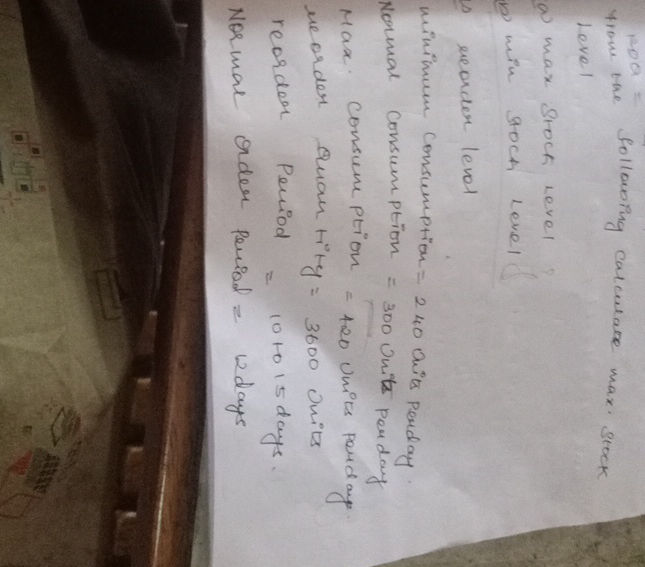 EOQ =
From the following calculate max. Stock
Level
a) max Stock Level
b) min Stock Level
c) reorder level
minimum consumption = 240 Units perday.
Normal Consumption = 300 Units perday
Max. Consumption = 420 Units perday.
reorder Quantity = 3600 Units
reorder Period = 10 to 15 days.
Normal Order Period = 12 days